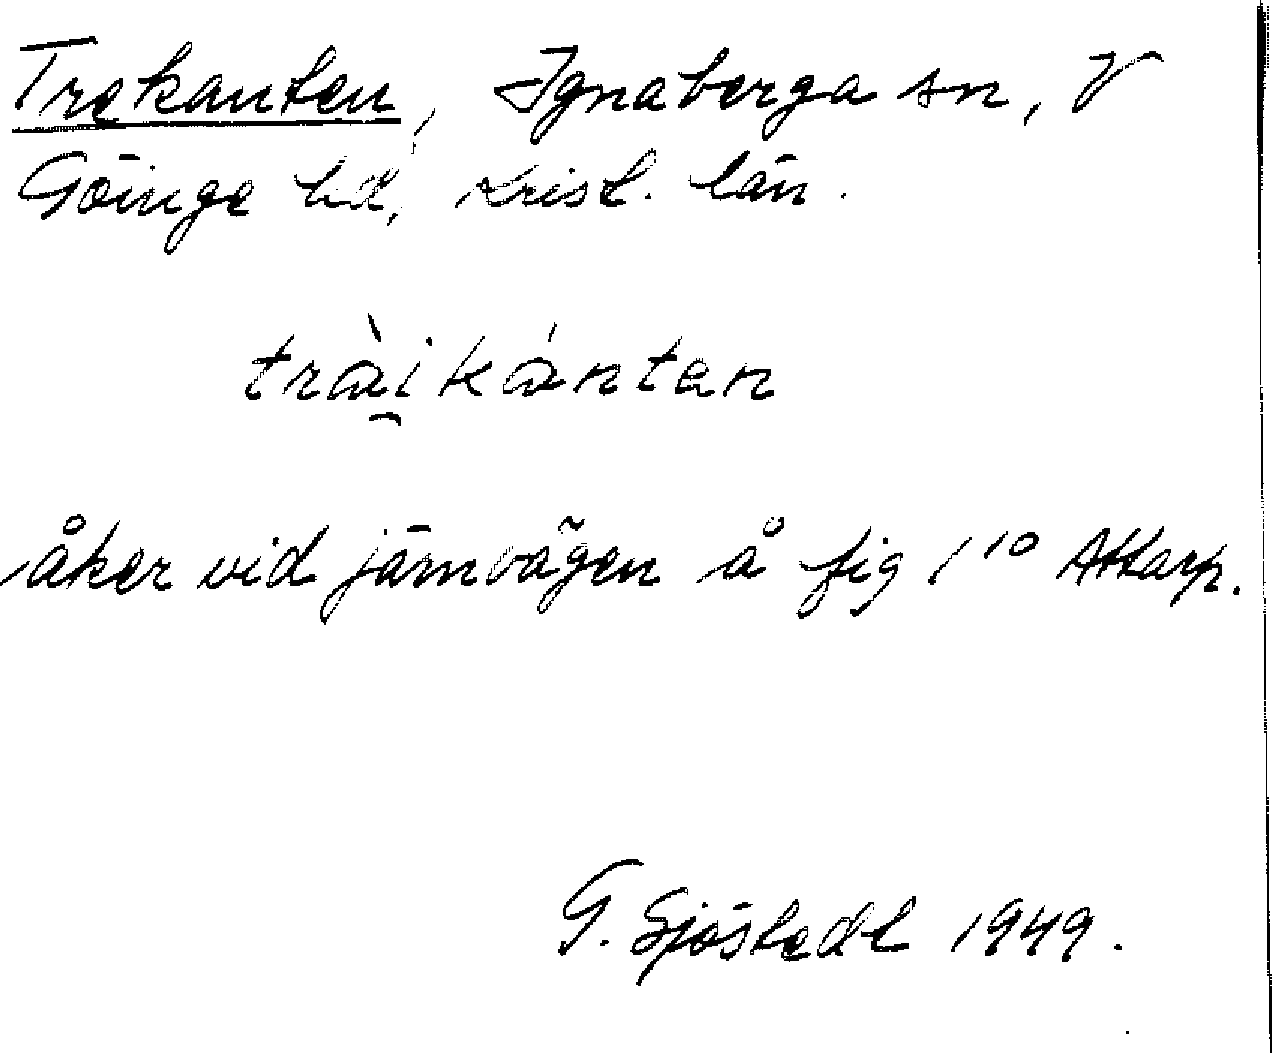 Trekanten, Ignaberga sn, V
Göinge hd, Krist. län.
trài̯kánten
åker vid järnvägen å fig 1¹⁰ Attarp.
G. Sjöstedt 1949.